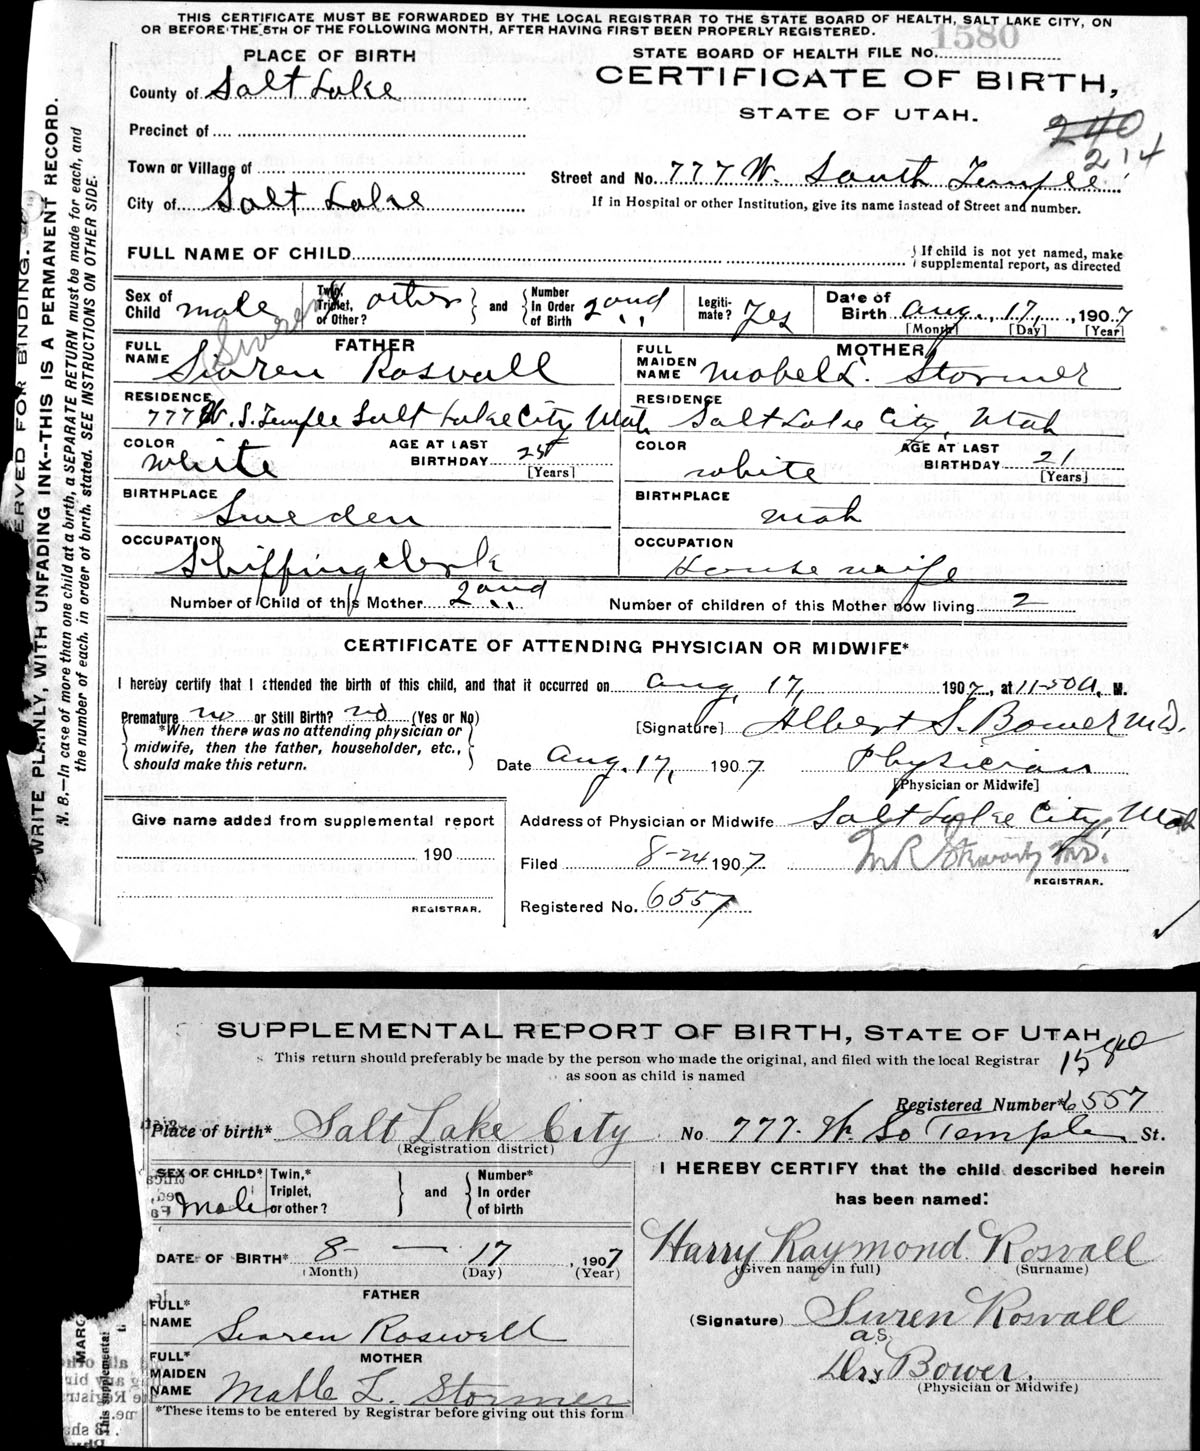 THIS CERTIFICATE MUST BE FORWARDED BY THE LOCAL REGISTRAR TO THE STATE BOARD OF HEALTH, SALT LAKE CITY, ON
OR BEFORE THE 5TH OF THE FOLLOWING MONTH, AFTER HAVING FIRST BEEN PROPERLY REGISTERED.
1580
PLACE OF BIRTH
STATE BOARD OF HEALTH FILE NO.
County of Salt Lake
CERTIFICATE OF BIRTH,
STATE OF UTAH.
240
214
Precinct of
Town or Village of
Street and No. 777 W. South Temple
City of Salt Lake
If in Hospital or other Institution, give its name instead of Street and number.
FULL NAME OF CHILD
If child is not yet named, make
supplemental report, as directed
Sex of Child male
Twin, Triplet, or Other? other
and
Number In Order of Birth 2ond
Legitimate? Yes
Date of Birth Aug., 17, 1907
[Month] [Day] [Year]
FATHER
MOTHER
FULL NAME Siaren Rosvall
FULL MAIDEN NAME Mabel L. Stormer
RESIDENCE 777 W. S. Temple Salt Lake City Utah
RESIDENCE Salt Lake City, Utah
COLOR white
AGE AT LAST BIRTHDAY 25 [Years]
COLOR white
AGE AT LAST BIRTHDAY 21 [Years]
BIRTHPLACE Sweden
BIRTHPLACE Utah
OCCUPATION Shipping clerk
OCCUPATION House wife
Number of Child of this Mother 2ond
Number of children of this Mother now living 2
CERTIFICATE OF ATTENDING PHYSICIAN OR MIDWIFE*
I hereby certify that I attended the birth of this child, and that it occurred on Aug, 17, 1907, at 11-50 A. M.
Premature no or Still Birth? no (Yes or No)
*When there was no attending physician or
midwife, then the father, householder, etc.,
should make this return.
[Signature] Albert S. Bower M.D.
Date Aug. 17, 1907
Physician
[Physician or Midwife]
Give name added from supplemental report
190
REGISTRAR.
Address of Physician or Midwife Salt Lake City, Utah
Filed 8-24 1907
M R Stewart M.D.
REGISTRAR.
Registered No. 6557
ERVED FOR BINDING.
WRITE PLAINLY, WITH UNFADING INK--THIS IS A PERMANENT RECORD.
N. B.—In case of more than one child at a birth, a SEPARATE RETURN must be made for each, and
the number of each, in order of birth, stated. SEE INSTRUCTIONS ON OTHER SIDE.
SUPPLEMENTAL REPORT OF BIRTH, STATE OF UTAH
This return should preferably be made by the person who made the original, and filed with the local Registrar
as soon as child is named
1580
Registered Number* 6557
Place of birth* Salt Lake City No 777. W. So Temple St.
(Registration district)
SEX OF CHILD* Male
Twin,* Triplet, or other?
and
Number* In order of birth
I HEREBY CERTIFY that the child described herein
has been named:
DATE OF BIRTH* 8 — 17, 1907
(Month) (Day) (Year)
Harry Raymond Rosvall
(Given name in full) (Surname)
FATHER
FULL* NAME Siaren Roswell
(Signature) Swren Rosvall
as
Dr. Bower.
(Physician or Midwife)
MOTHER
FULL* MAIDEN NAME Mable L. Stormer
*These items to be entered by Registrar before giving out this form